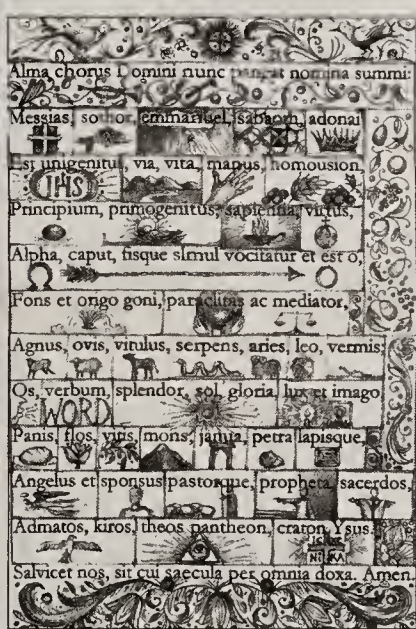 Alma chorus Domini nunc pangat nomina summi:
Messias, sothor, emmanuel, sabaoth, adonai
Est unigenitus, via, vita, manus, homousion,
IHS
Principium, primogenitus, sapientia, virtus,
Alpha, caput, fisque simul vocitatur et est o,
Fons et origo goni, paraclitas ac mediator,
Agnus, ovis, vitulus, serpens, aries, leo, vermis;
Os, verbum, splendor, sol, gloria, lux et imago
WORD
Panis, flos, vitis, mons, janua, petra lapisque,
Angelus et sponsus pastorque, propheta, sacerdos,
Admatos, kiros, theos pantheon, craton Ysus.
Salvicet nos, sit cui saecula per omnia doxa. Amen.